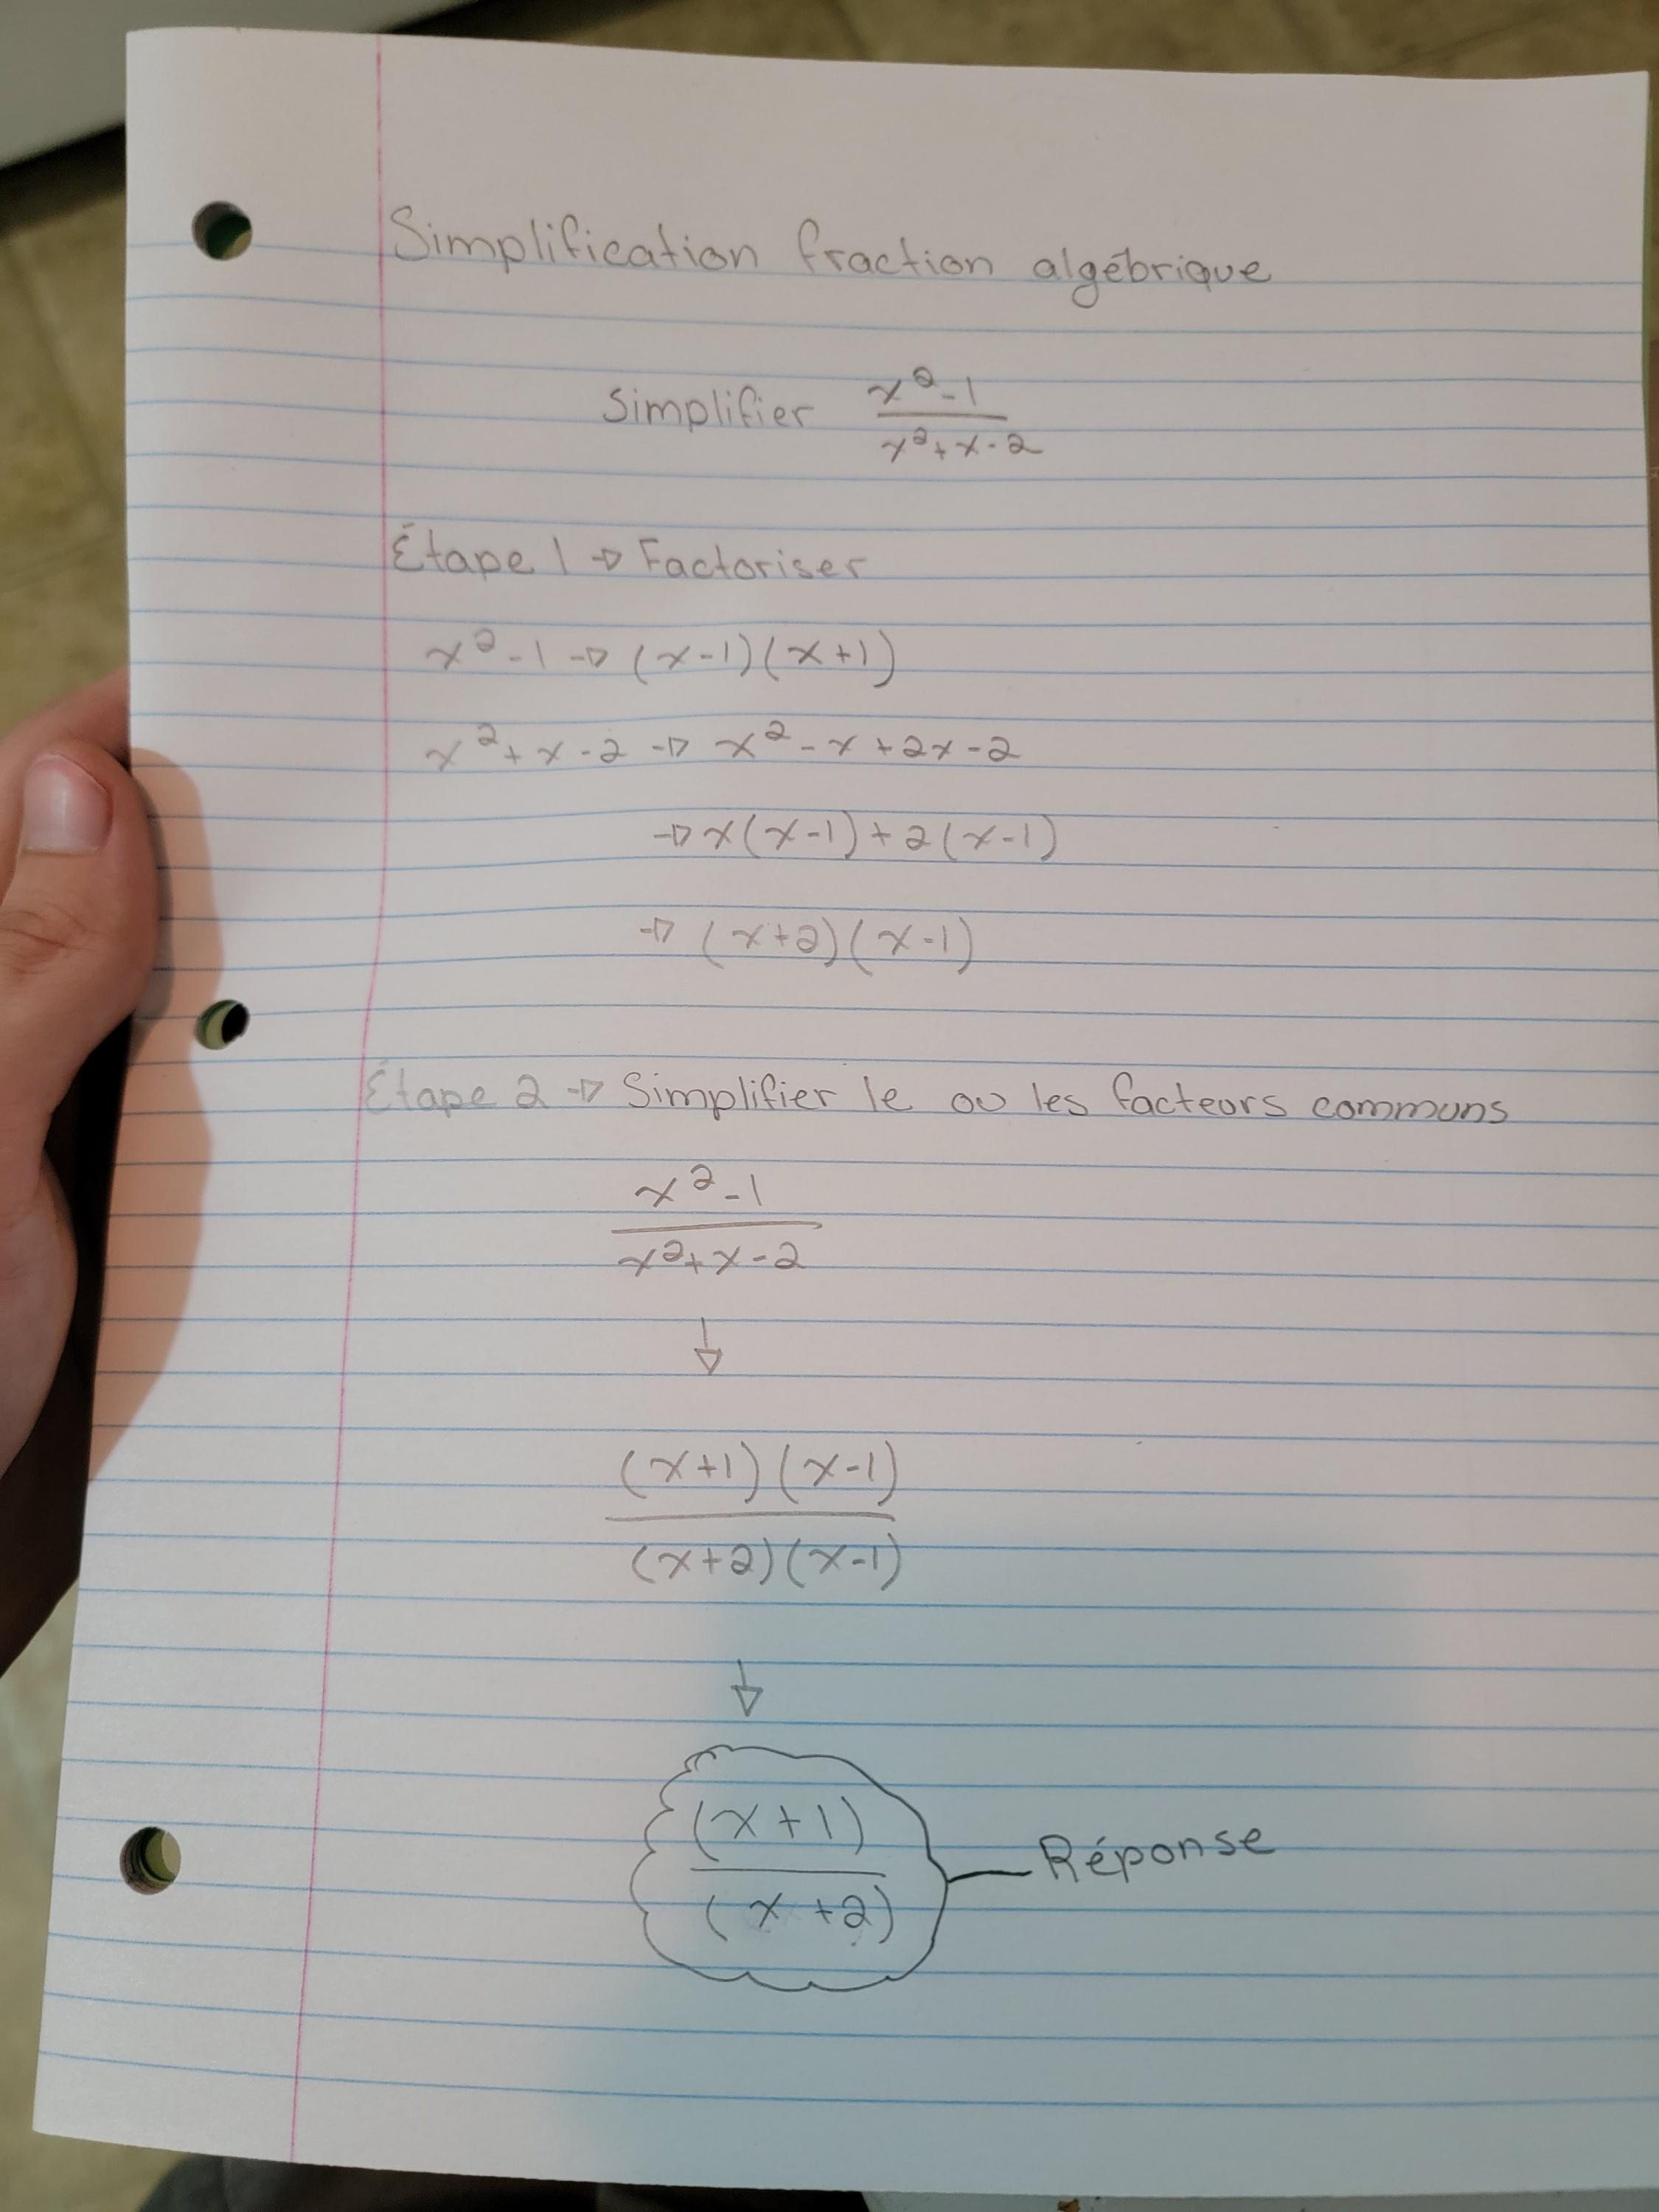 Simplification fraction algébrique
Simplifier x²-1
x²+x-2
Étape 1 → Factoriser
x²-1 → (x-1)(x+1)
x²+x-2 → x²-x+2x-2
→ x(x-1)+2(x-1)
→ (x+2)(x-1)
Étape 2 → Simplifier le ou les facteurs communs
x²-1
x²+x-2
↓
(x+1)(x-1)
(x+2)(x-1)
↓
(x+1)
(x+2)
Réponse